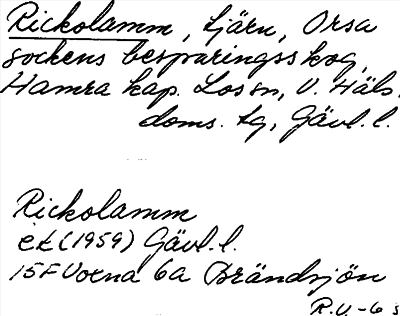 Rickolamm, tjärn, Orsa
sockens besparingsskog,
Hamra kap. Los sn, V. Häls.
doms. tg, Gävl. l.
Rickolamm
ek (1959) Gävl. l.
15F Voxna 6a Brändsjön
R.U.-6 s